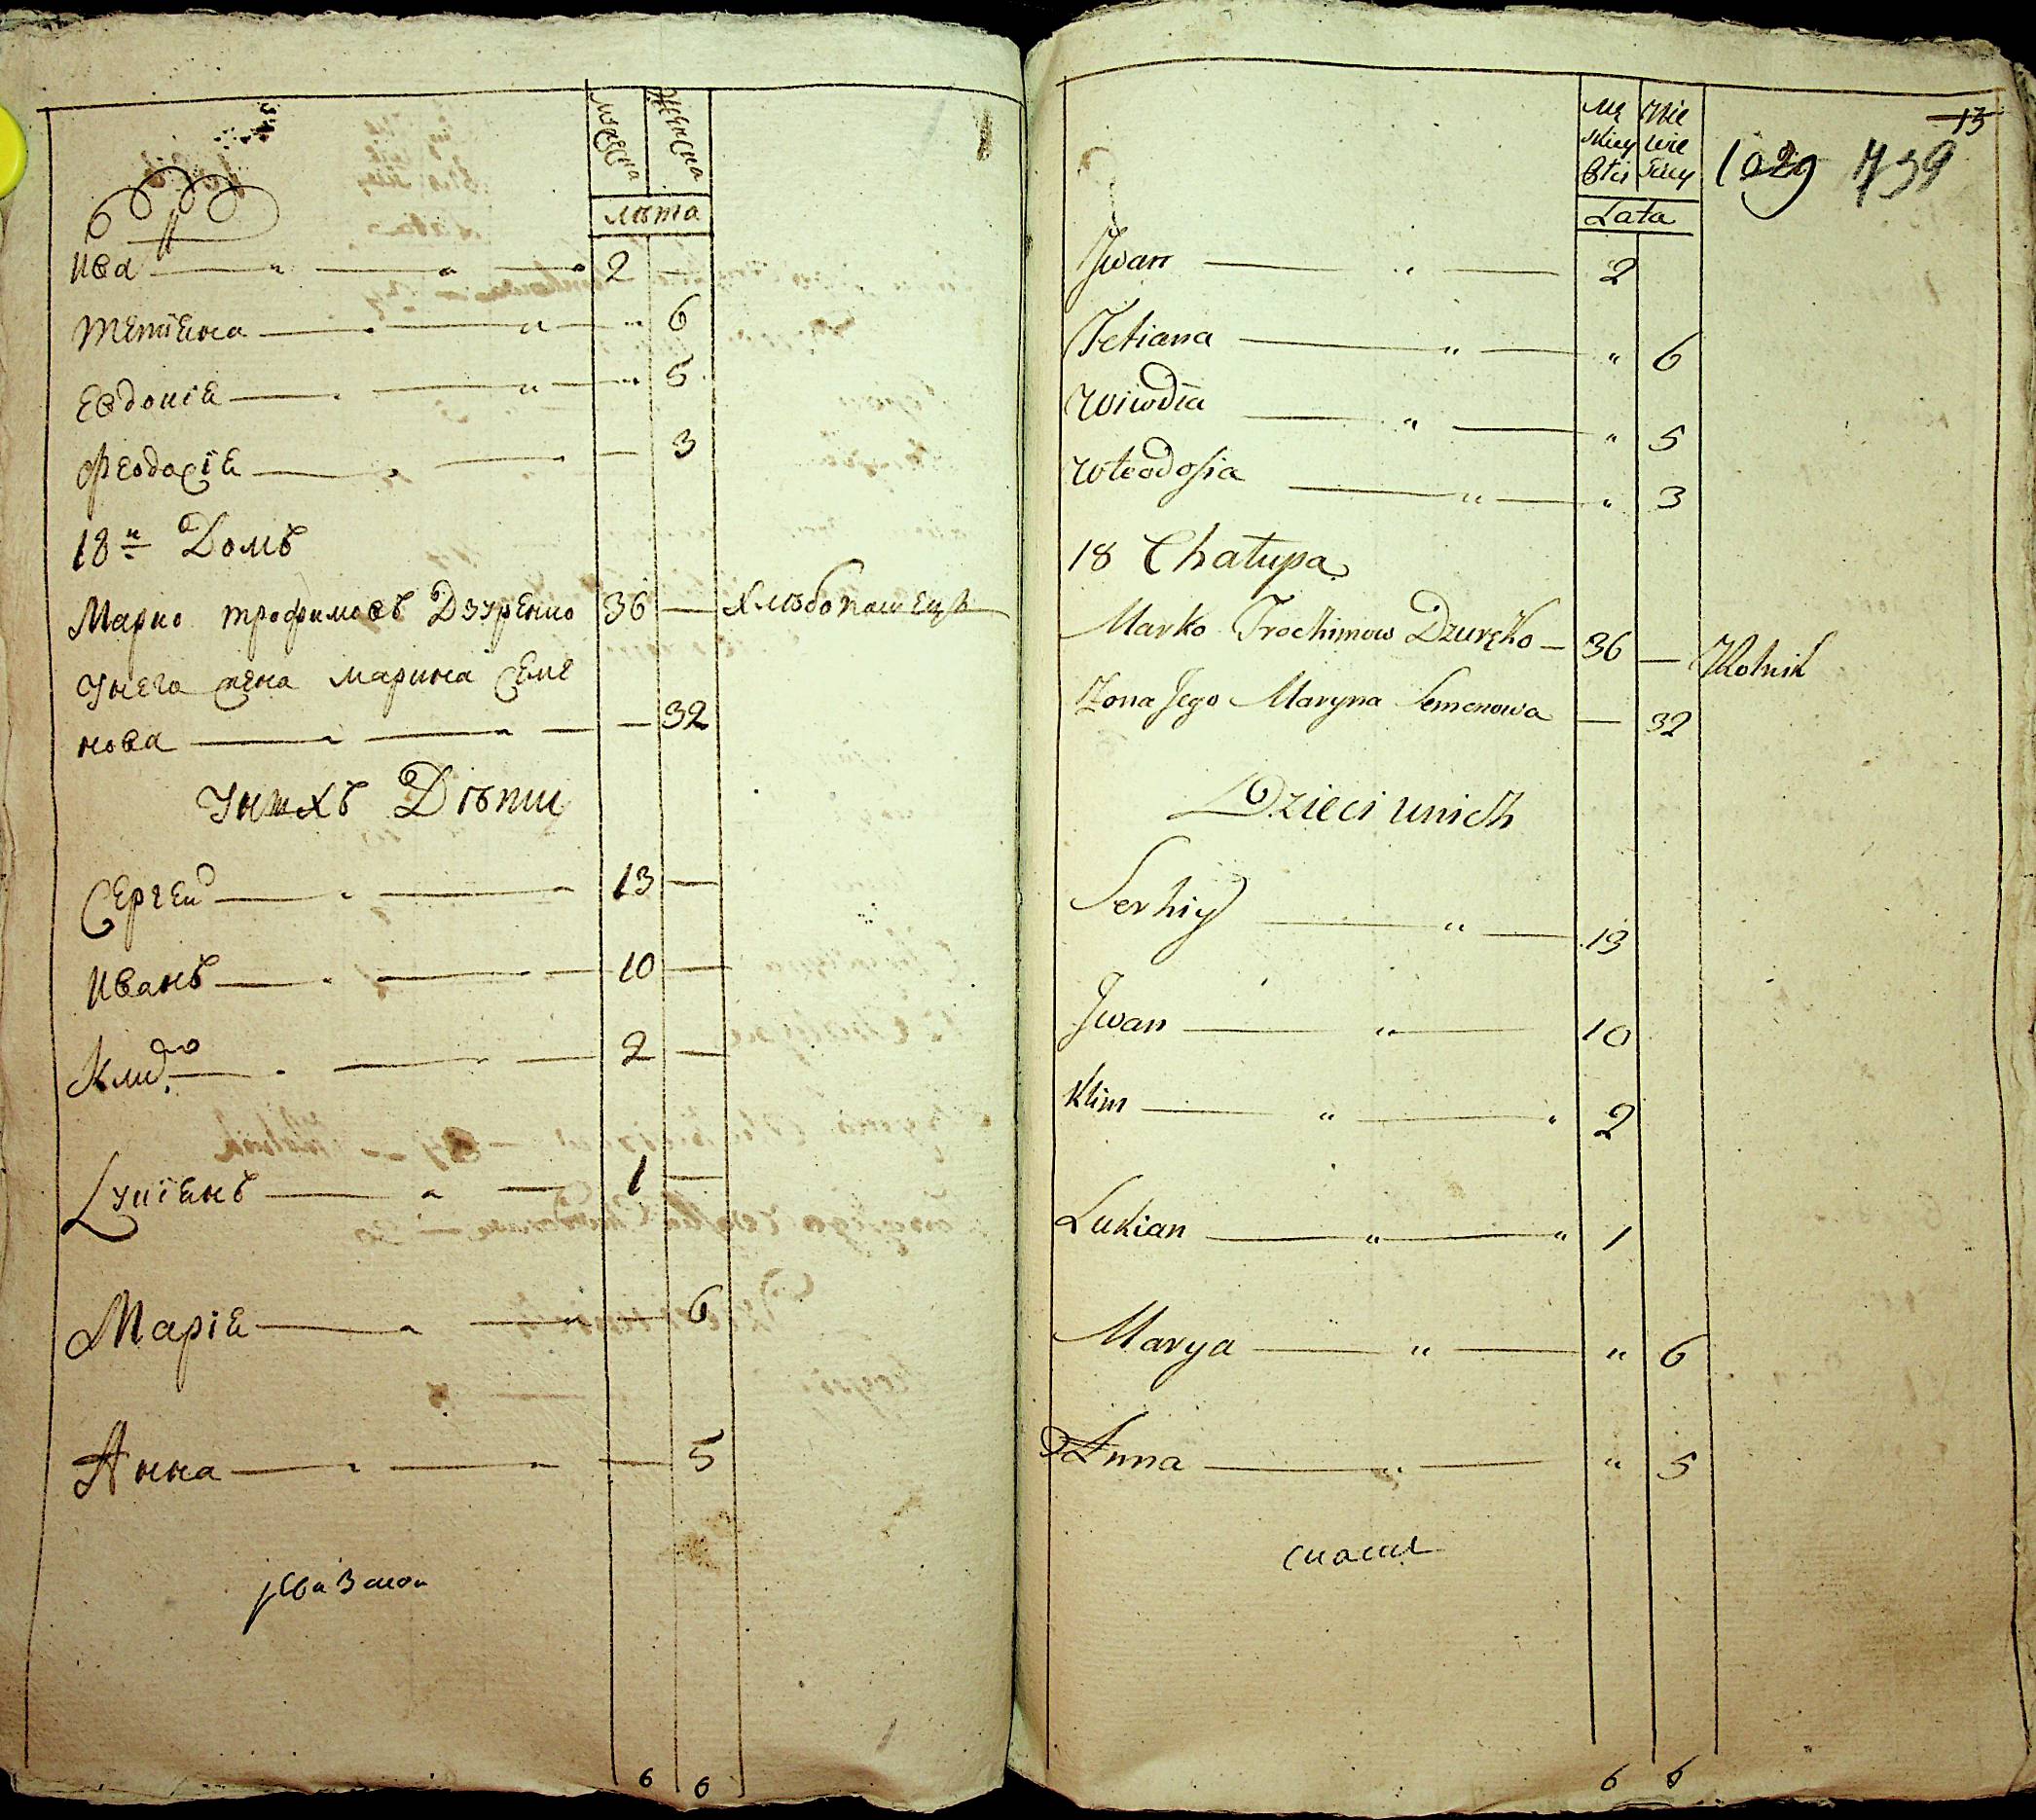 мужеска
женска
лѣта
Ива 2
Тетіяна 6
Евдокія 5
Феодосія 3
18й Домъ
Марко трофимовъ Дзуренко 36 Хлѣбопашецъ
У него жена марина Семе
нова 32
У нихъ Дѣти
Сергей 13
Иванъ 10
Клим 2
Лукіянъ 1
Марія 6
Анна 5
6 6
13
Mę
skiey
Płci
Nie
wie
sciey
1029 739
Lata
Jwan 2
Tetiana 6
Wiwdia 5
Wteodosia 3
18 Chałupa
Marko Trochimow Dzuręko 36 Rolnik
Zona Jego Maryna Semenowa 32
Dzieci unich
Serhiy 13
Jwan 10
Klim 2
Lukian 1
Marya 6
Anna 5
6 6